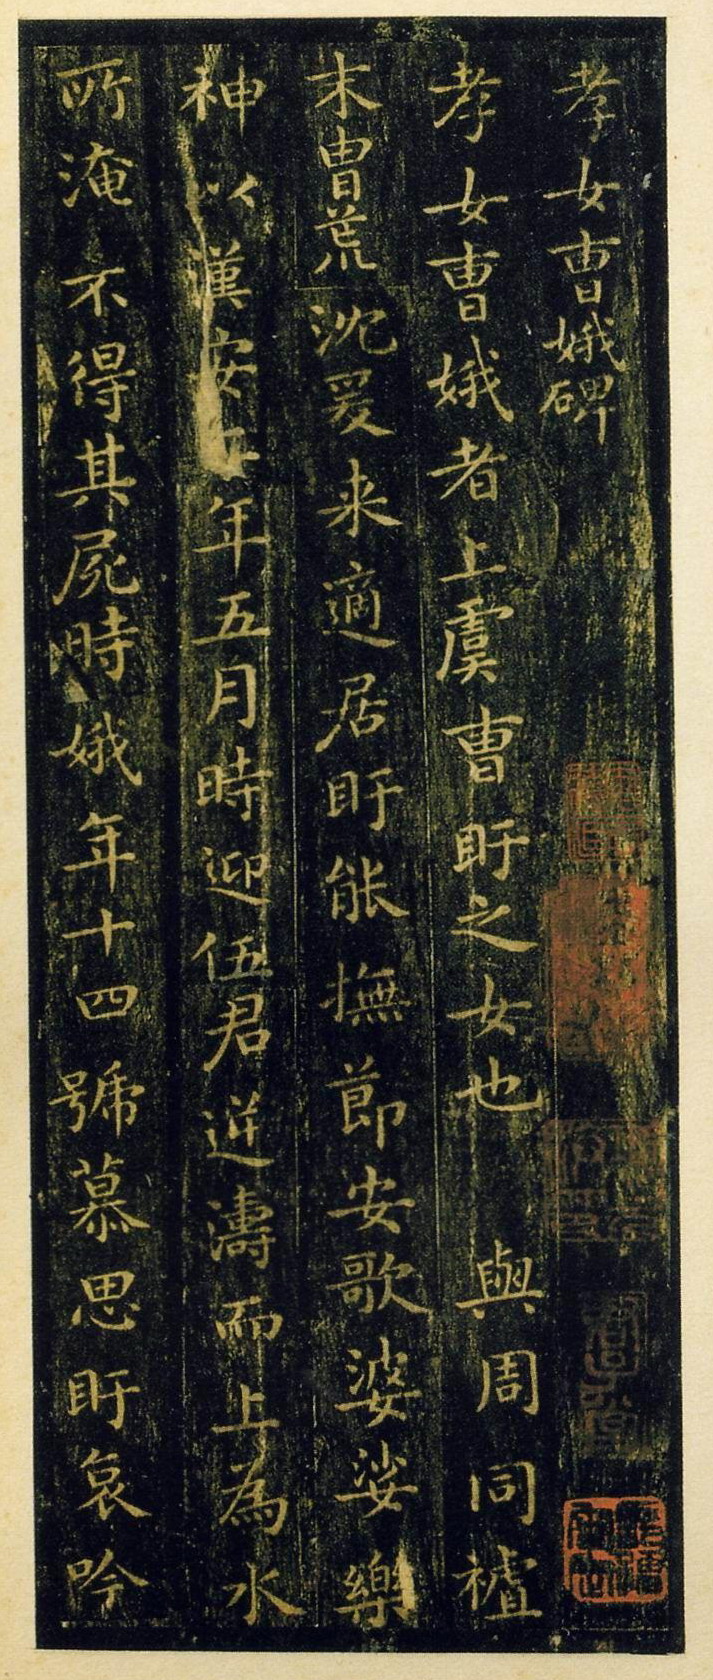 孝女曹娥碑
孝女曹娥者上虞曹盱之女也 與周同
末曹荒沈爰来適居盱能撫節安歌婆娑樂
神以漢安年五月時迎伍君逆濤而上為水
所淹 不得其屍時娥年十四號慕思盱哀吟